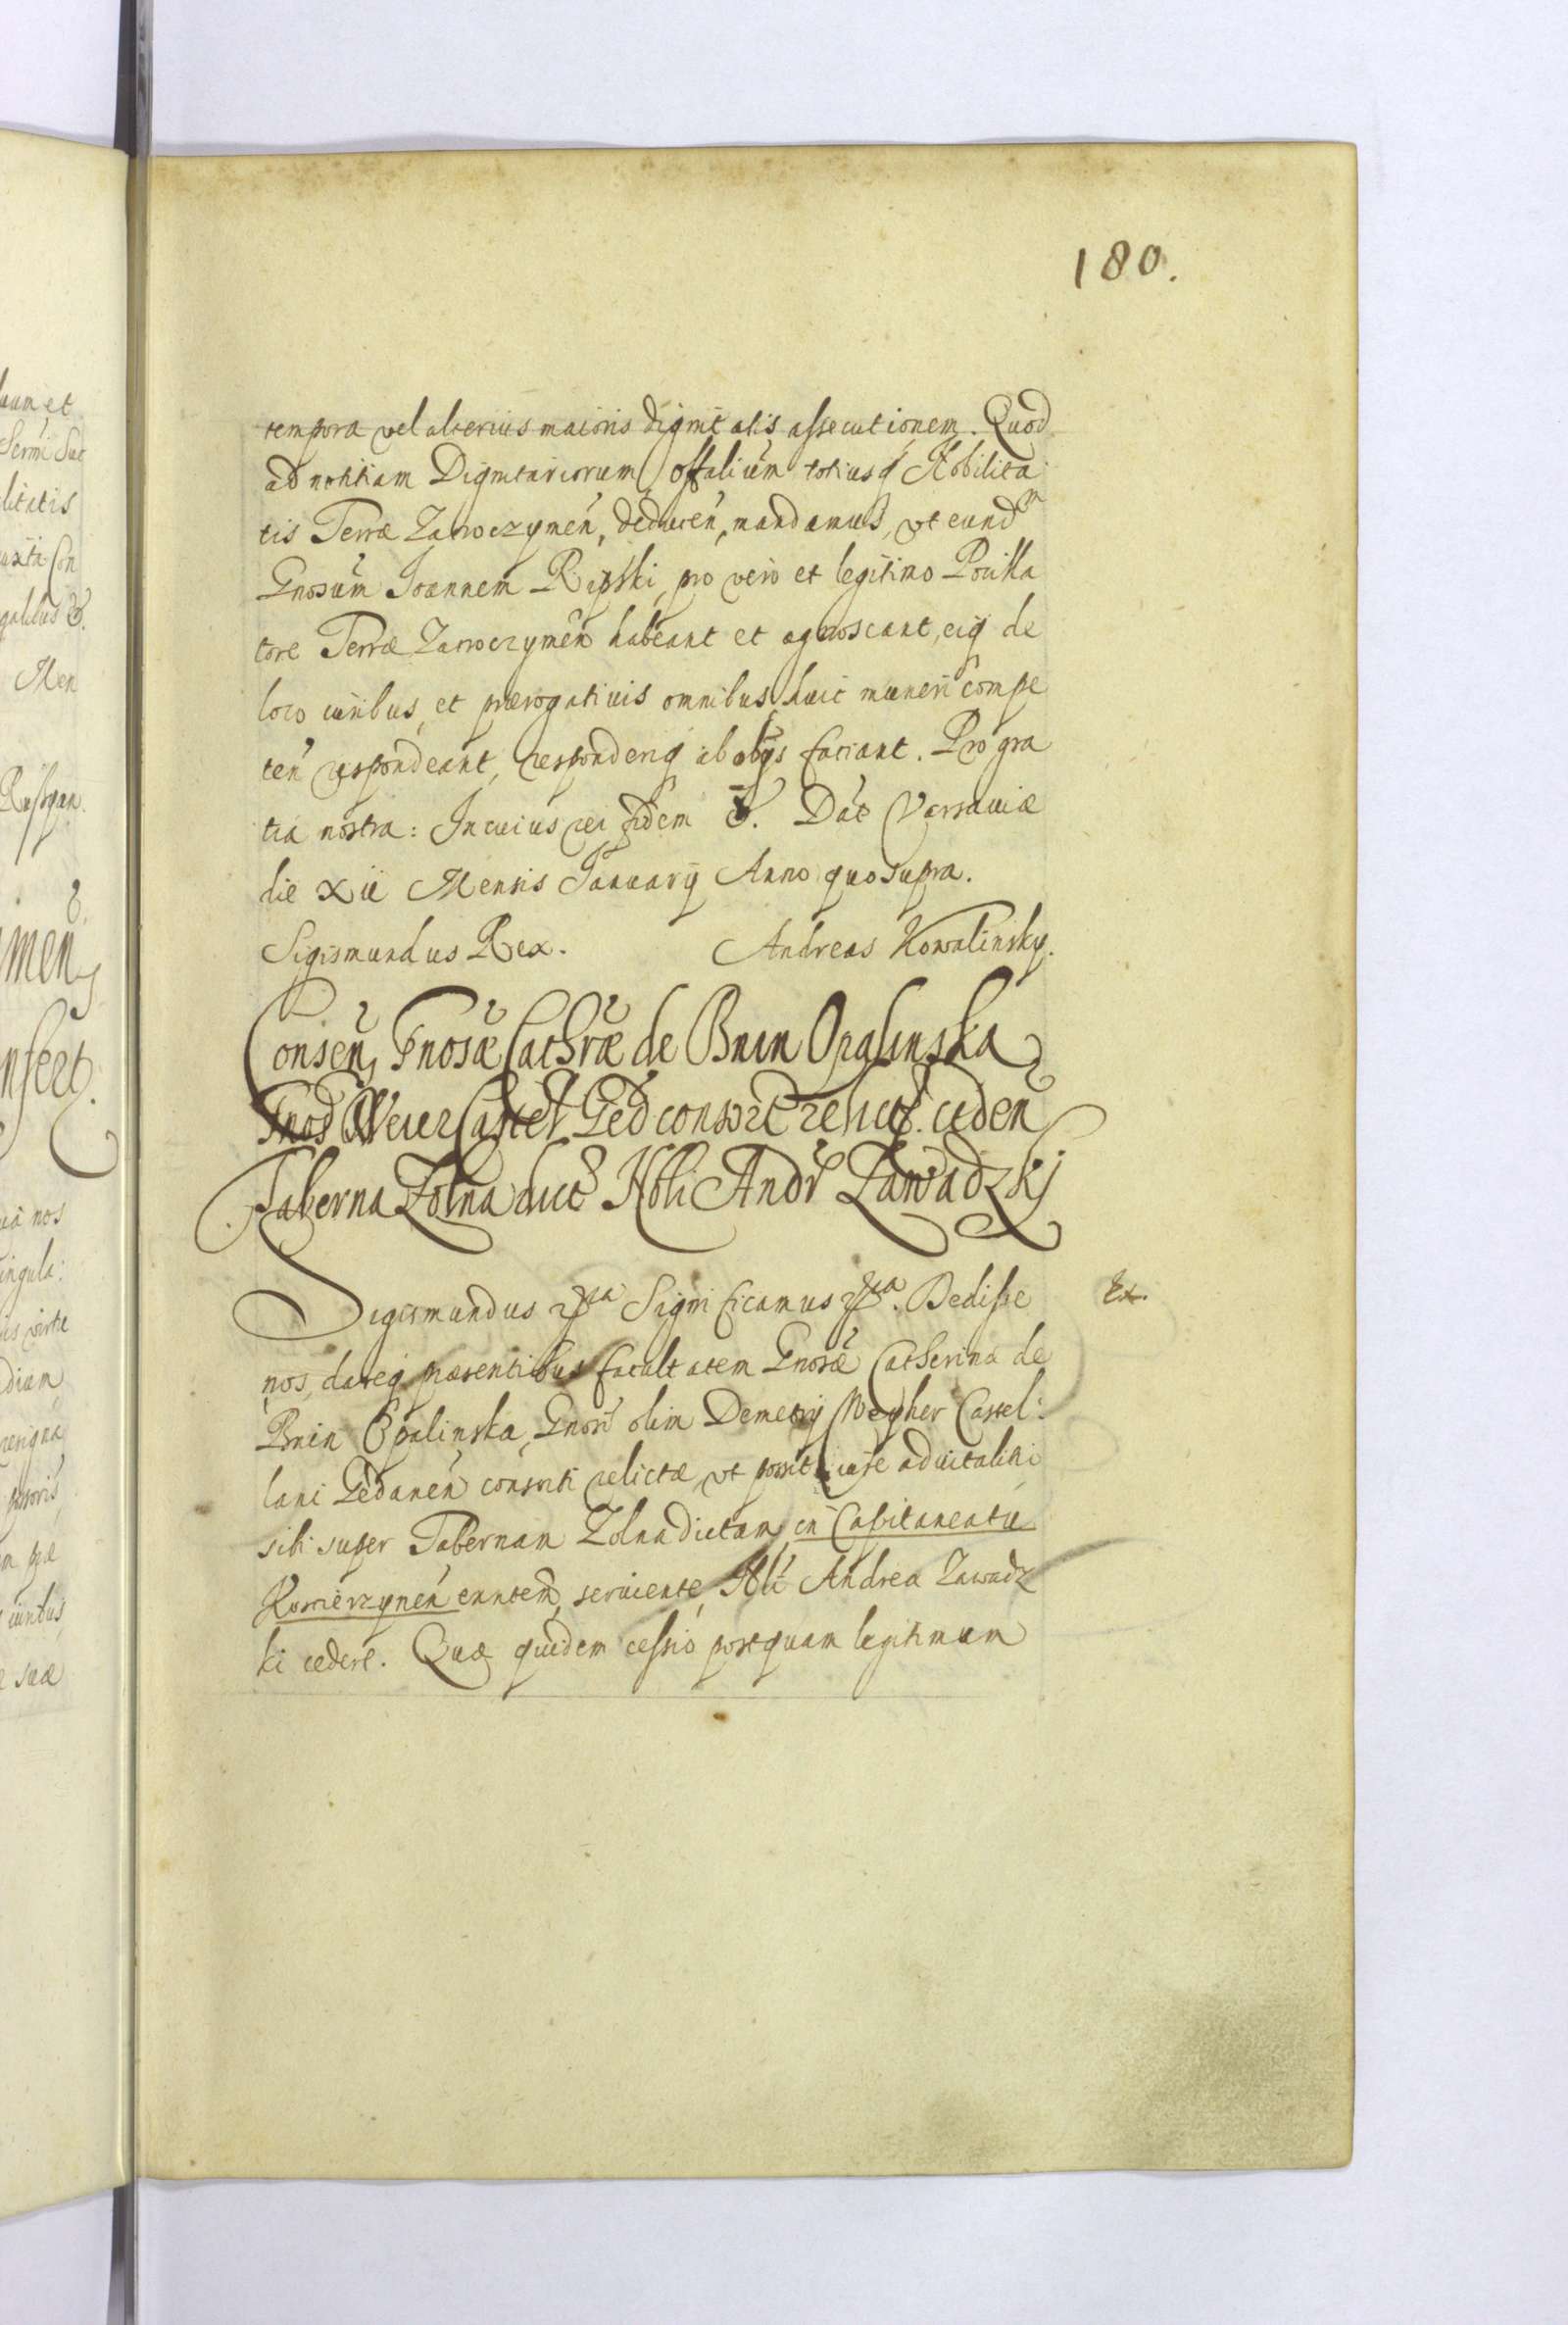 180.
tempora vel alterius maioris dignitatis assecutionem. Quod
ad notitiam Dignitariorum, offalium totiusq Nobilita
tis Terræ Zawoczymen, deducen, mandamus, vt eund m
Gnosum Joannem Ripski, pro vero et legitimo Pocilla
tore Terræ Zawoczymen habeant et agnoscant, eiq de
loco iuribus, et prærogatiuis omnibus, huic muneri compe
ten respondeant, responderiq ab alijs faciant. Pro gra
tia nostra: In cuius rei fidem &. Dat Varsauiæ
die xii Mensis January Anno quo supra.
Sigismundus Rex. Andreas Kowalinsky.
Consen, Gnosæ Cathræ de Bnin Opalinska
Gnos Weier Castel Ged consort relict. ceden
Taberna Zolna dict Nbli Andr Zawadzkj
Sigismundus Significamus Dedisse
Ex.
nos, dareq præsentibus facultatem Gnosæ Catherina de
Bnin Opalinska, Gnosi olim Demetrij Weyher Castel:
lani Gedanen consorti relictæ, vt possit iure aduitalitio
sibi super Tabernam Zolna dictam, in Capitaneatu
Koscierzynen enntem, seruiente, Nbli Andrea Zawadz
ki cedere. Quæ quidem cessio postquam legitimum